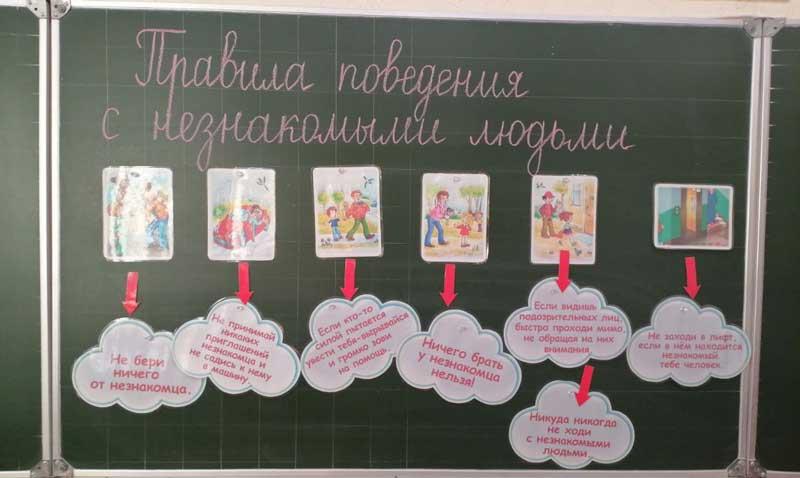 Правила поведения
с незнакомыми людьми
Не бери
ничего
от незнакомца.
Не принимай
никаких
приглашений
незнакомца и
не садись к нему
в машину.
Если кто-то
силой пытается
увести тебя-вырывайся
и громко зови
на помощь.
Ничего брать
у незнакомца
нельзя!
Если видишь
подозрительных лиц,
быстро проходи мимо,
не обращая на них
внимания
Не заходи в лифт,
если в нём находится
незнакомый
тебе человек.
Никуда никогда
не ходи
с незнакомыми
людьми.